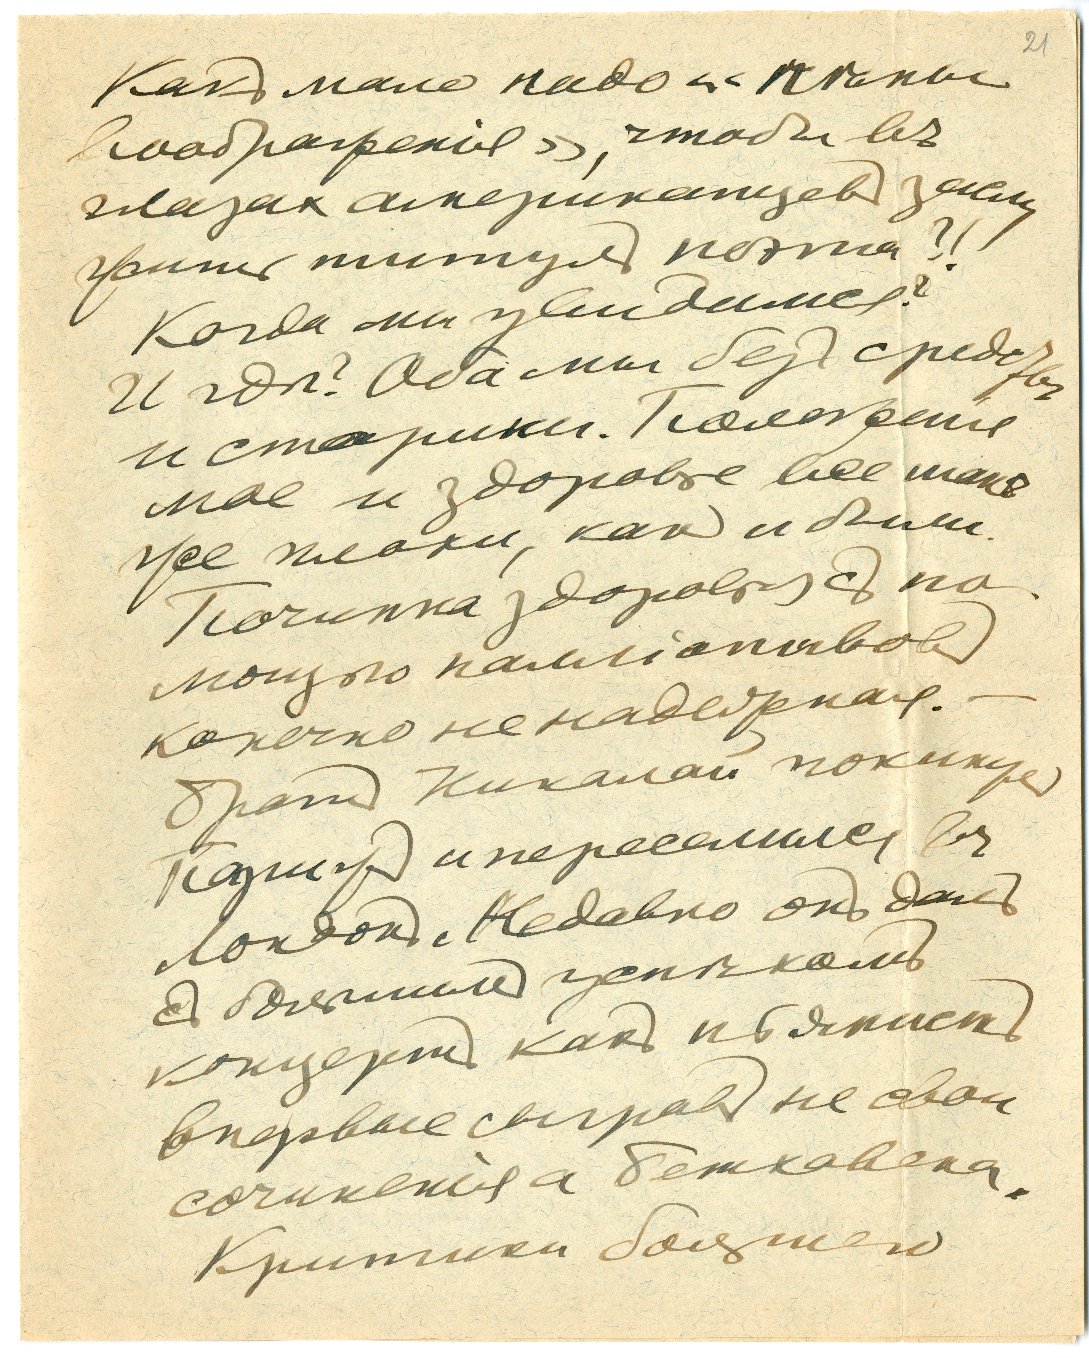 21
Какъ мало надо « пѣны
воображенія », чтобы въ
глазах американцевъ заслу
жить титулъ поэта ?!
Когда мы увидимся?
И гдѣ? Оба мы безъ средствъ
и старики. Положенія
мое и здоровье все такъ
же плохи, какъ и были.
Починка здоровья съ по
мощью палліативовъ
конечно не надежная. —
Братъ Николай покинулъ
Парижъ и переселился въ
Лондонъ. Недавно онъ далъ
съ большимъ успѣхомъ
концертъ какъ пьянистъ
впервые сыгравъ не свои
сочиненія а Бетховена.
Критики большею